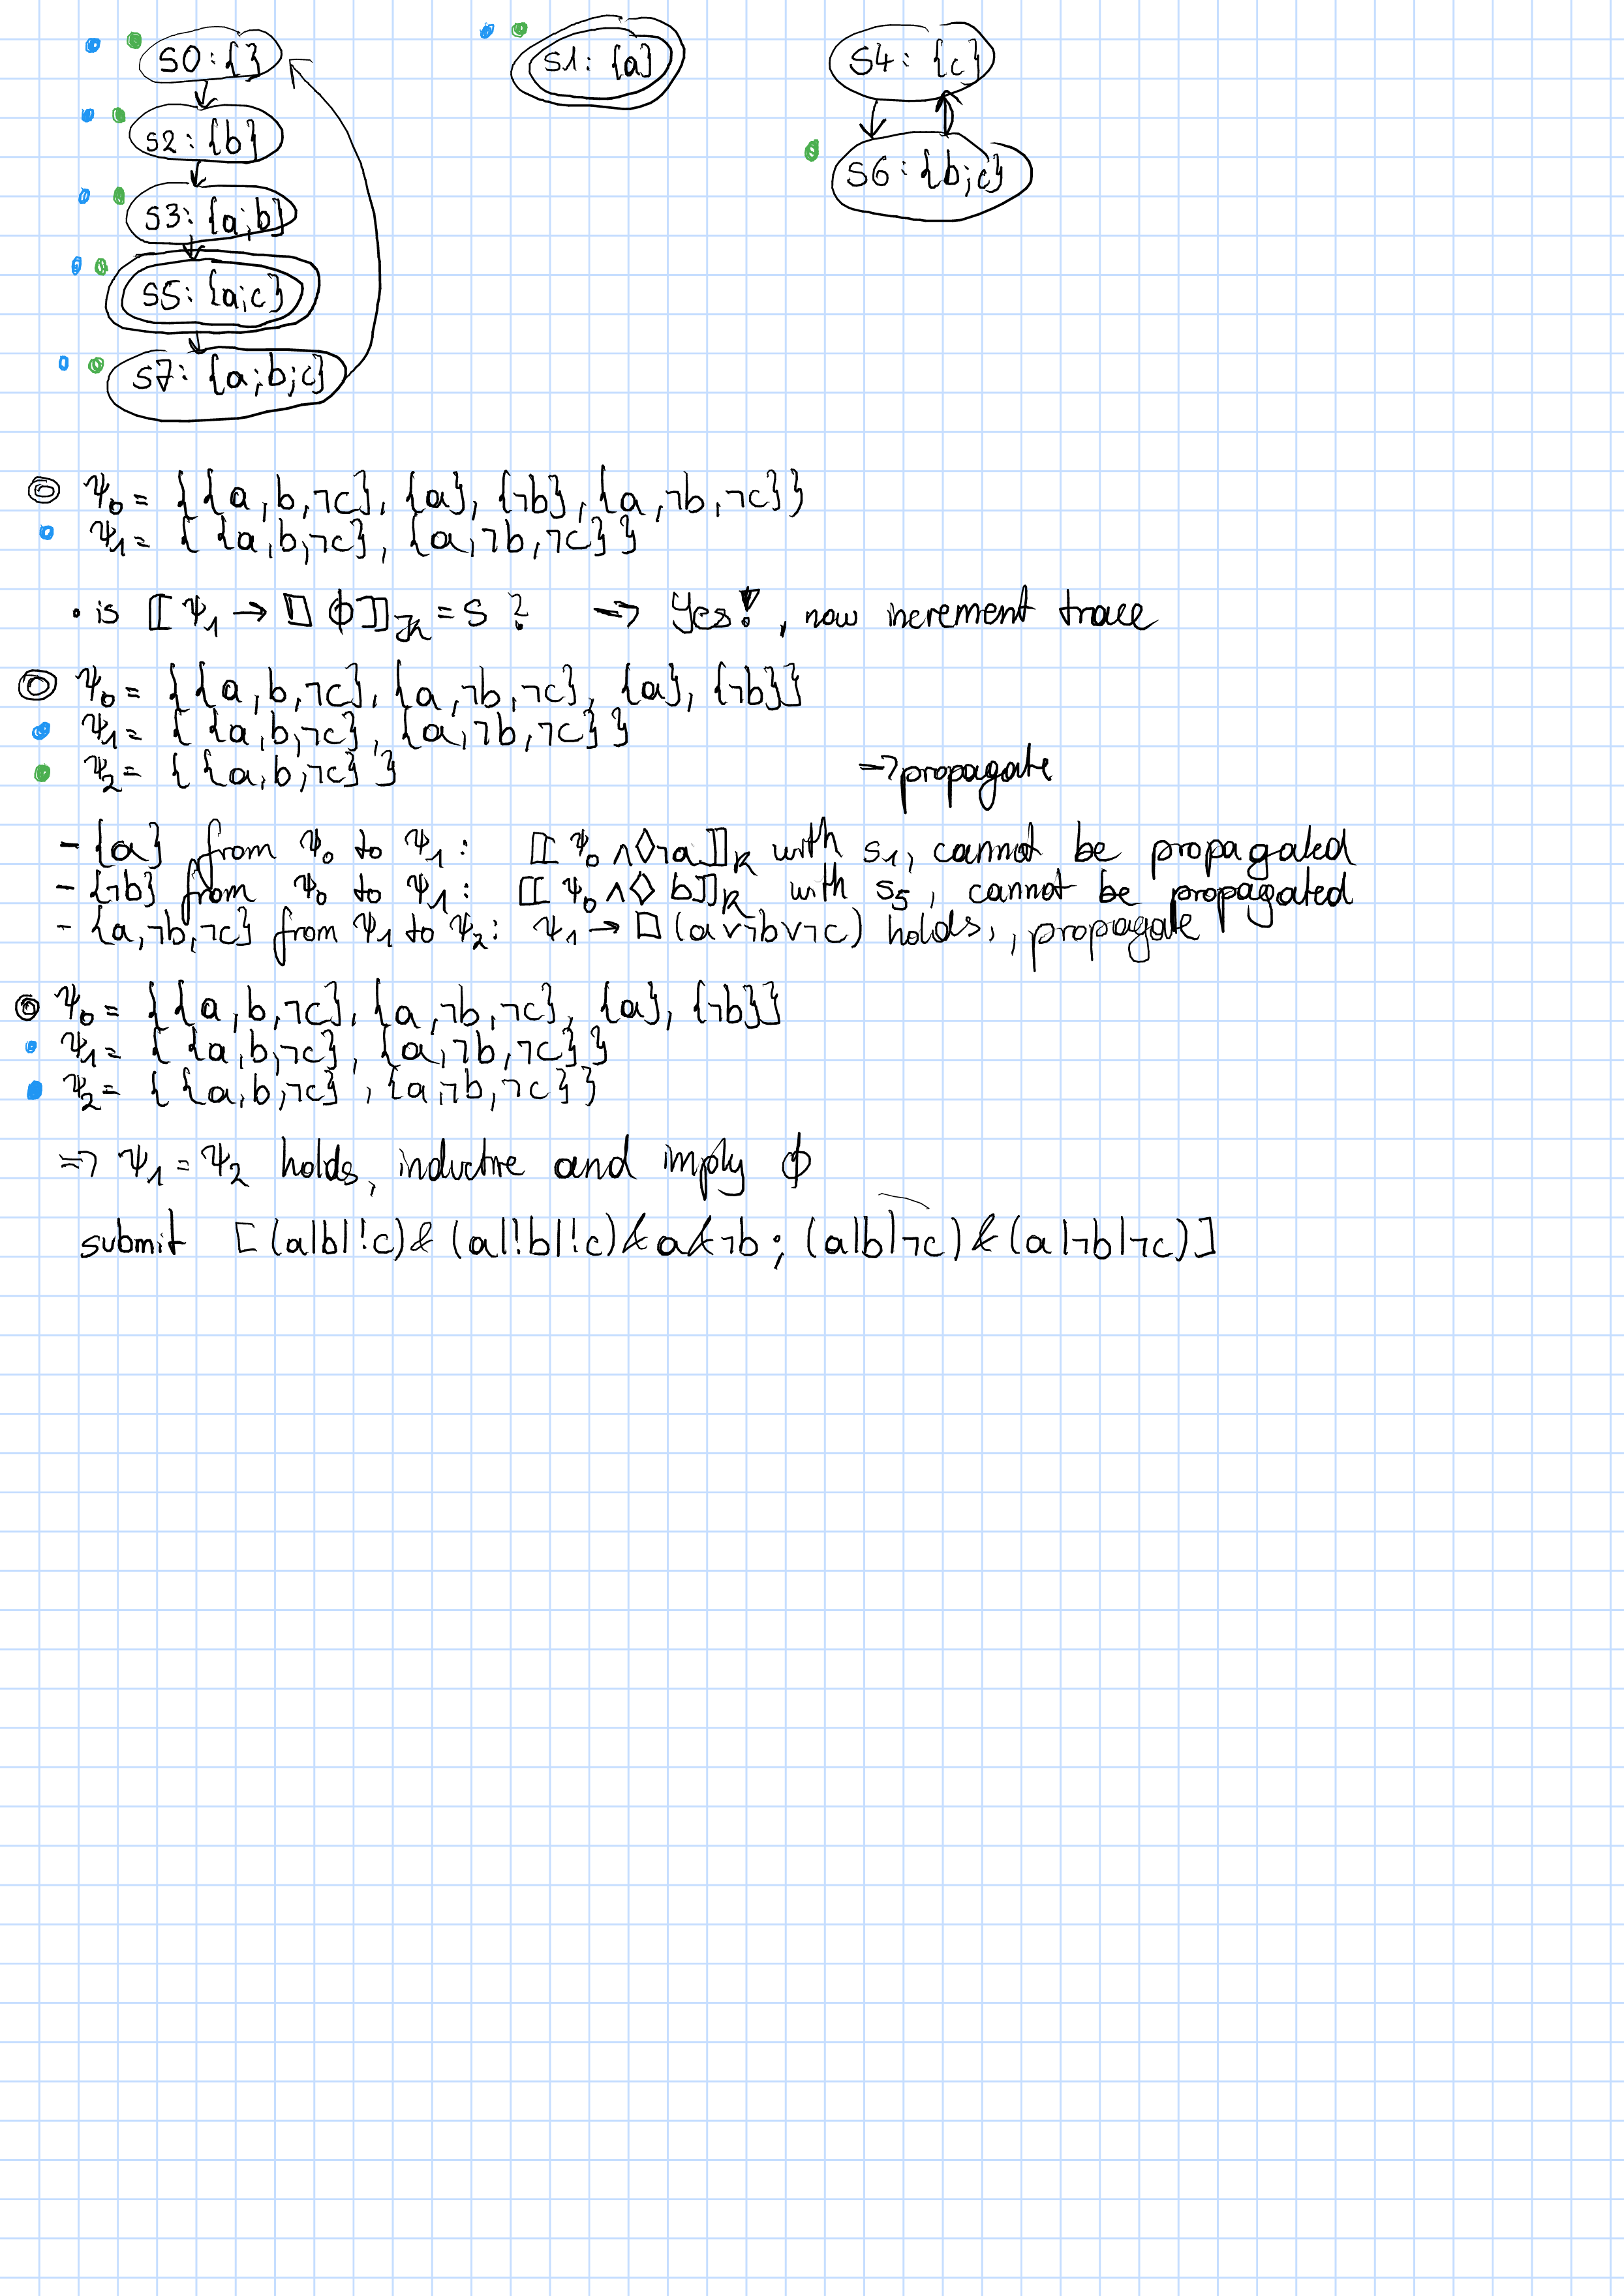 S0:{}
S1: {a}
S4: {c}
S2: {b}
S6: {b;c}
S3: {a;b}
S5: {a;c}
S7: {a;b;c}
Ψ0 = {{a,b,¬c}, {a}, {¬b}, {a,¬b,¬c}}
Ψ1 = { {a,b,¬c}, {a,¬b,¬c} }
• is ⟦Ψ1 → □ ϕ⟧K = S ? => Yes!, now increment trace
Ψ0 = {{a,b,¬c}, {a,¬b,¬c}, {a}, {¬b}}
Ψ1 = { {a,b,¬c}, {a,¬b,¬c} }
Ψ2 = { {a,b,¬c} } → propagate
- {a} from Ψ0 to Ψ1: ⟦Ψ0 ∧ ◇¬a⟧K with S1, cannot be propagated
- {¬b} from Ψ0 to Ψ1: ⟦Ψ0 ∧ ◇ b⟧K with S5, cannot be propagated
- {a,¬b,¬c} from Ψ1 to Ψ2: Ψ1 → □ (a∨¬b∨¬c) holds, , propagate
Ψ0 = {{a,b,¬c}, {a,¬b,¬c}, {a}, {¬b}}
Ψ1 = { {a,b,¬c}, {a,¬b,¬c} }
Ψ2 = { {a,b,¬c} , {a,¬b,¬c} }
=> Ψ1 = Ψ2 holds, inductive and imply ϕ
submit [(a|b|!c)&(a|!b|!c)&a&¬b ; (a|b|¬c)&(a|¬b|¬c)]